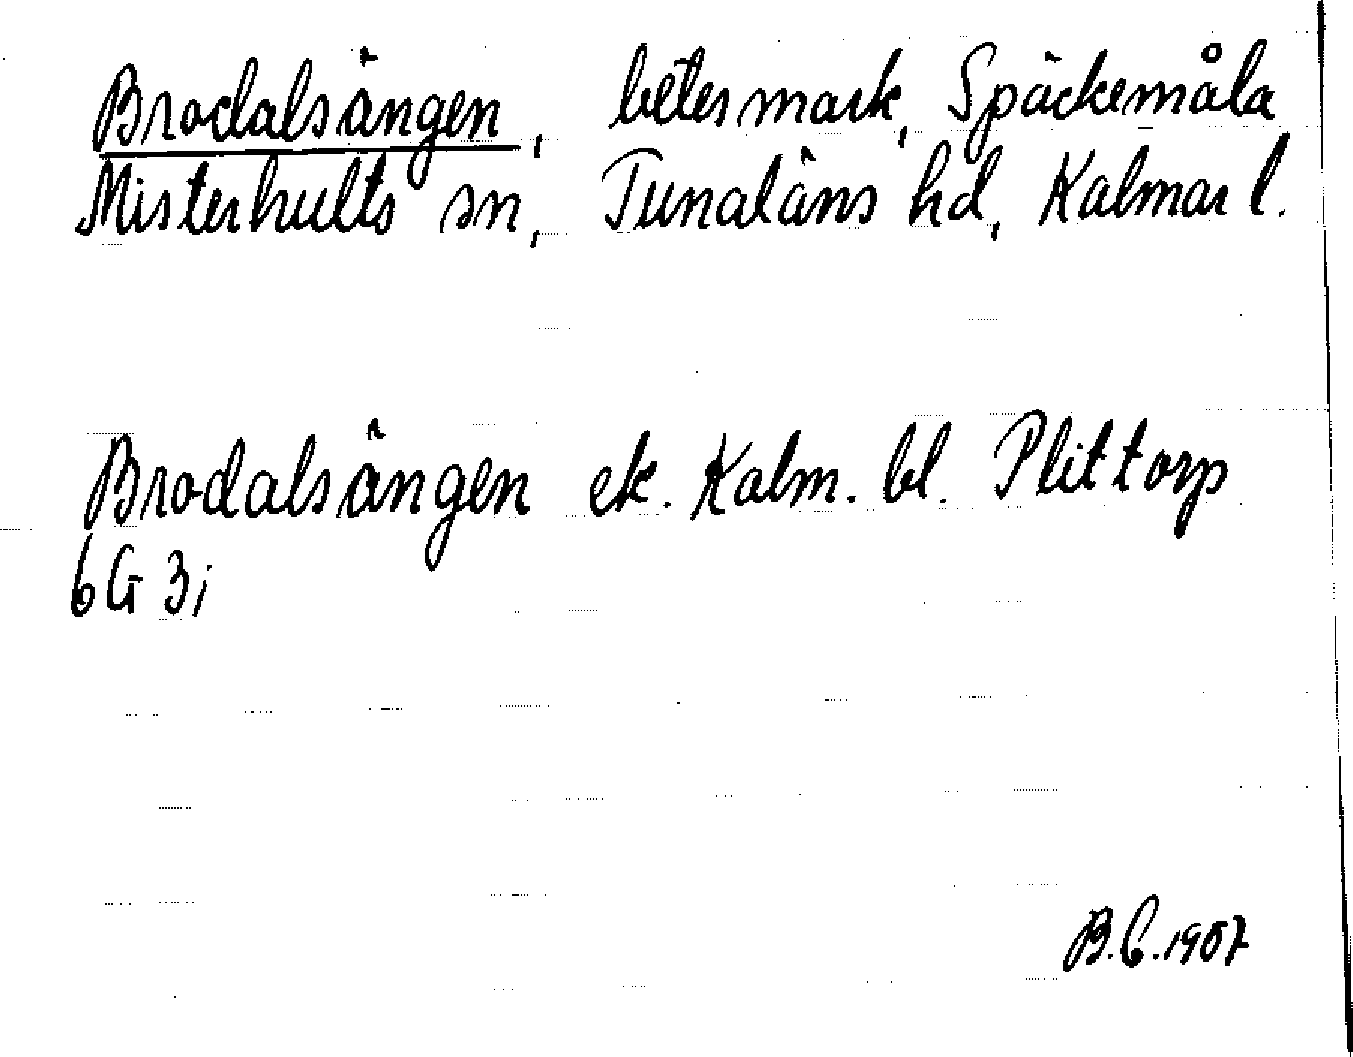 Brodalsängen, betesmark, Späckemåla
Misterhults sn, Tunaläns hd, Kalmar l.
Brodalsängen ek. Kalm. bl. Plittorp
6G 3i
B.C. 1957